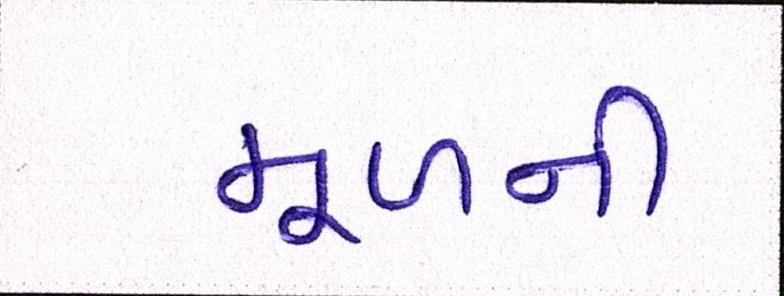 મૂળની